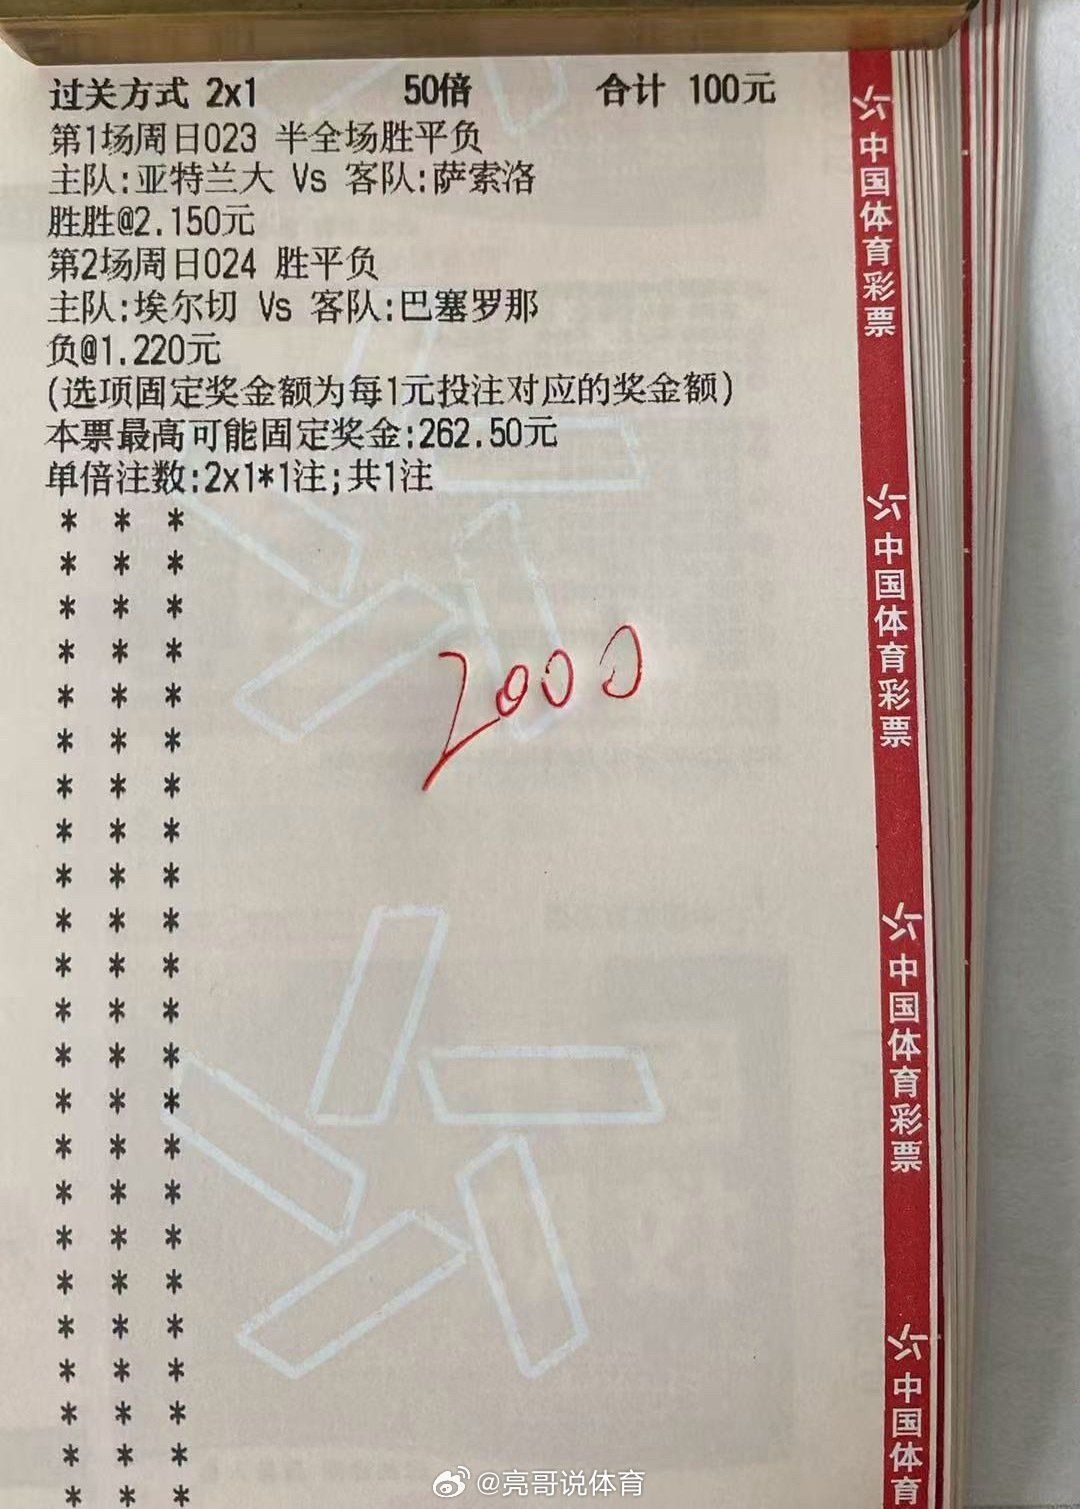 过关方式 2x1 50倍 合计 100元
第1场周日023 半全场胜平负
主队:亚特兰大 Vs 客队:萨索洛
胜胜@2.150元
第2场周日024 胜平负
主队:埃尔切 Vs 客队:巴塞罗那
负@1.220元
(选项固定奖金额为每1元投注对应的奖金额)
本票最高可能固定奖金:262.50元
单倍注数:2x1*1注;共1注
* * *
* * *
* * *
* * *
* * *
* * *
* * *
* * *
* * *
* * *
* * *
* * *
* * *
* * *
* * *
* * *
* * *
* * *
* * *
* * *
* * *
* * *
* * *
2000
中国体育彩票
中国体育彩票
中国体育彩票
中国体育
@亮哥说体育